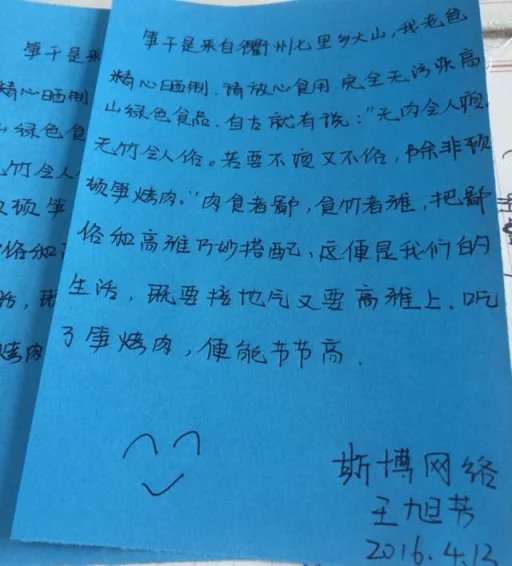 笋干是来自衢州七里乡大山,我老爸
精心晒制.请放心食用.完全无污染高
山绿色食品.自古就有说:"无肉令人瘦
无竹令人俗。若要不瘦又不俗,除非顿
顿笋烤肉."肉食者鄙,食竹者雅,把鄙
俗和高雅巧妙搭配、这便是我们的
生活,既要接地气又要高雅上.吃
了笋烤肉,便能节节高.
斯博网络
王旭芳
2016.4.13
笋干是来
精心晒制
山绿色食
无竹令人
顿笋
俗和高
活,既
烤肉